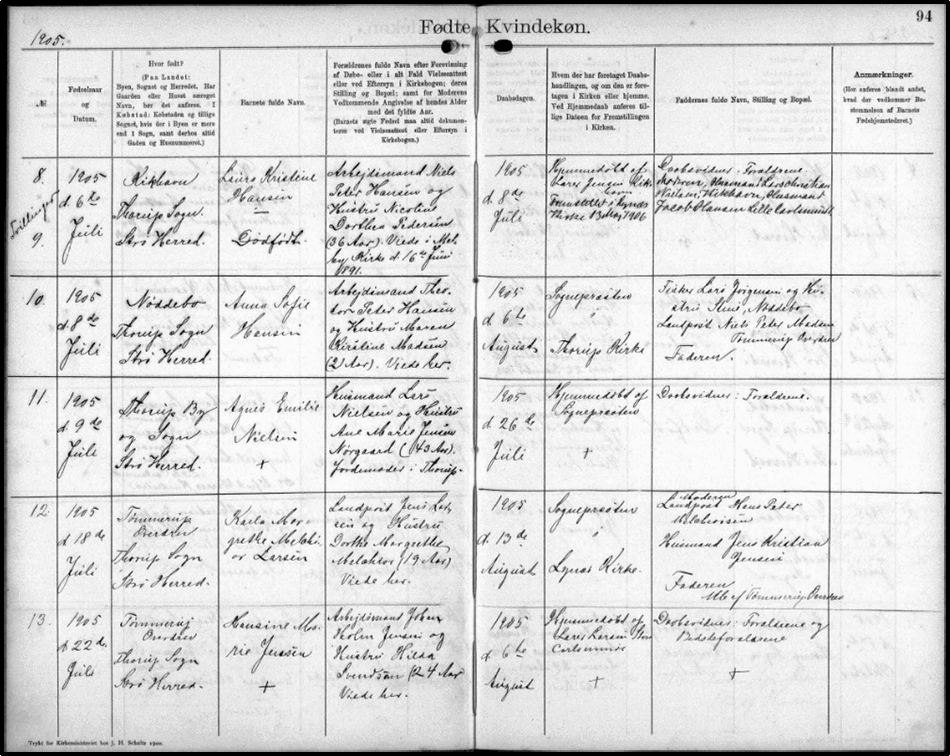 94
Fødte Kvindekøn.
1905.
№
Fødselsaar
og
Datum.
Hvor født?
(Paa Landet:
Byen, Sognet og Herredet. Har
Gaarden eller Huset særeget
Navn, bør det anføres. I
Købstad: Købstaden og tillige
Sognet, hvis der i Byen er mere
end 1 Sogn, samt derhos altid
Gaden og Husnummeret.)
Barnets fulde Navn.
Forældrenes fulde Navn efter Forevisning
af Døbe- eller i alt Fald Vielsesattest
eller ved Eftersyn i Kirkebogen; deres
Stilling og Bopæl; samt for Moderens
Vedkommende Angivelse af hendes Alder
med det fyldte Aar.
(Barnets ægte Fødsel maa altid dokumen-
teres ved Vielsesattest eller Eftersyn i
Kirkebogen.)
Daabsdagen.
Hvem der har foretaget Daabs-
handlingen, og om den er fore-
tagen i Kirken eller hjemme.
Ved Hjemmedaab anføres til-
lige Datoen for Fremstillingen
i Kirken.
Faddernes fulde Navn, Stilling og Bopæl.
Anmærkninger.
(Her anføres blandt andet,
hvad der vedkommer Be-
stemmelsen af Barnets
Fødehjemstederet.)
8.
Tvillinger
9.
1905
d 6te
Juli
Kikhavn
Thorup Sogn
Strø Herred.
Laura Kristine
Hansen
Dødfødt.
Arbejdsmand Niels
Peter Hansen og
Hustru Nicoline
Dorthea Pedersen
(36 Aar). Viede i Mel
by Kirke d. 16de Juni
1891.
1905
d 8de
Juli
Hjemmedøbt af
Lars Jensen Kik
havn
Fremstillet i Lynæs
Kirke 13 Maj 1906
Daabsvidner: Forældrene.
Moderen, Husmand Lars Christian
Kikhavn, Husmand
Jacob Olausen Lille Carlsminde
10.
1905
d 8de
Juli
Nøddebo
Thorup Sogn
Strø Herred.
Anna Sofie
Hansen
Arbejdsmand Theo
dor Peter Hansen
og Hustru Maren
Kirstine Madsen
(21 Aar). Viede her.
1905
d 6te
August
Sognepræsten
Thorup Kirke
Fisker Lars Jørgensen og Hu
stru Ane, Nøddebo
Landpost Niels Peter Madsen
Tømmerup Overdrev
Faderen.
11.
1905
d 9de
Juli
Thorup By
og Sogn
Strø Herred.
Agnes Emilie
Nielsen
+
Husmand Lars
Nielsen og Hustru
Ane Marie Jensen
Nørgaard (43 Aar).
Jordemoder i Thorup.
1905
d 26de
Juli
Hjemmedøbt af
Sognepræsten
+
Daabsvidner: Forældrene.
12.
1905
d 18de
Juli
Tømmerup
Overdrev
Thorup Sogn
Strø Herred.
Karla Mar
grethe Melchi
or Larsen
Landpost Jens Lar
sen og Hustru
Dorthe Margrethe
Melchior (19 Aar)
Viede her.
1905
d 13de
August
Sognepræsten
Lynæs Kirke.
Moderen
Landpost Hans Peter
Melchiorsen
Husmand Jens Kristian
Jensen
Faderen
Alle af Tømmerup Overdrev
13.
1905
d 22de
Juli
Tømmerup
Overdrev
Thorup Sogn
Strø Herred.
Hansine Ma
rie Jensen
+
Arbejdsmand Johan
Holm Jensen og
Hustru Hilda
Svendsen (24 Aar
Viede her.
1905
d 6te
August
Hjemmedøbt af
Lars Larsen Store
Carlsminde
+
Daabsvidner: Forældrene og
Bedsteforældrene
+
Trykt for Kirkeministeriet hos J. H. Schultz 1900.